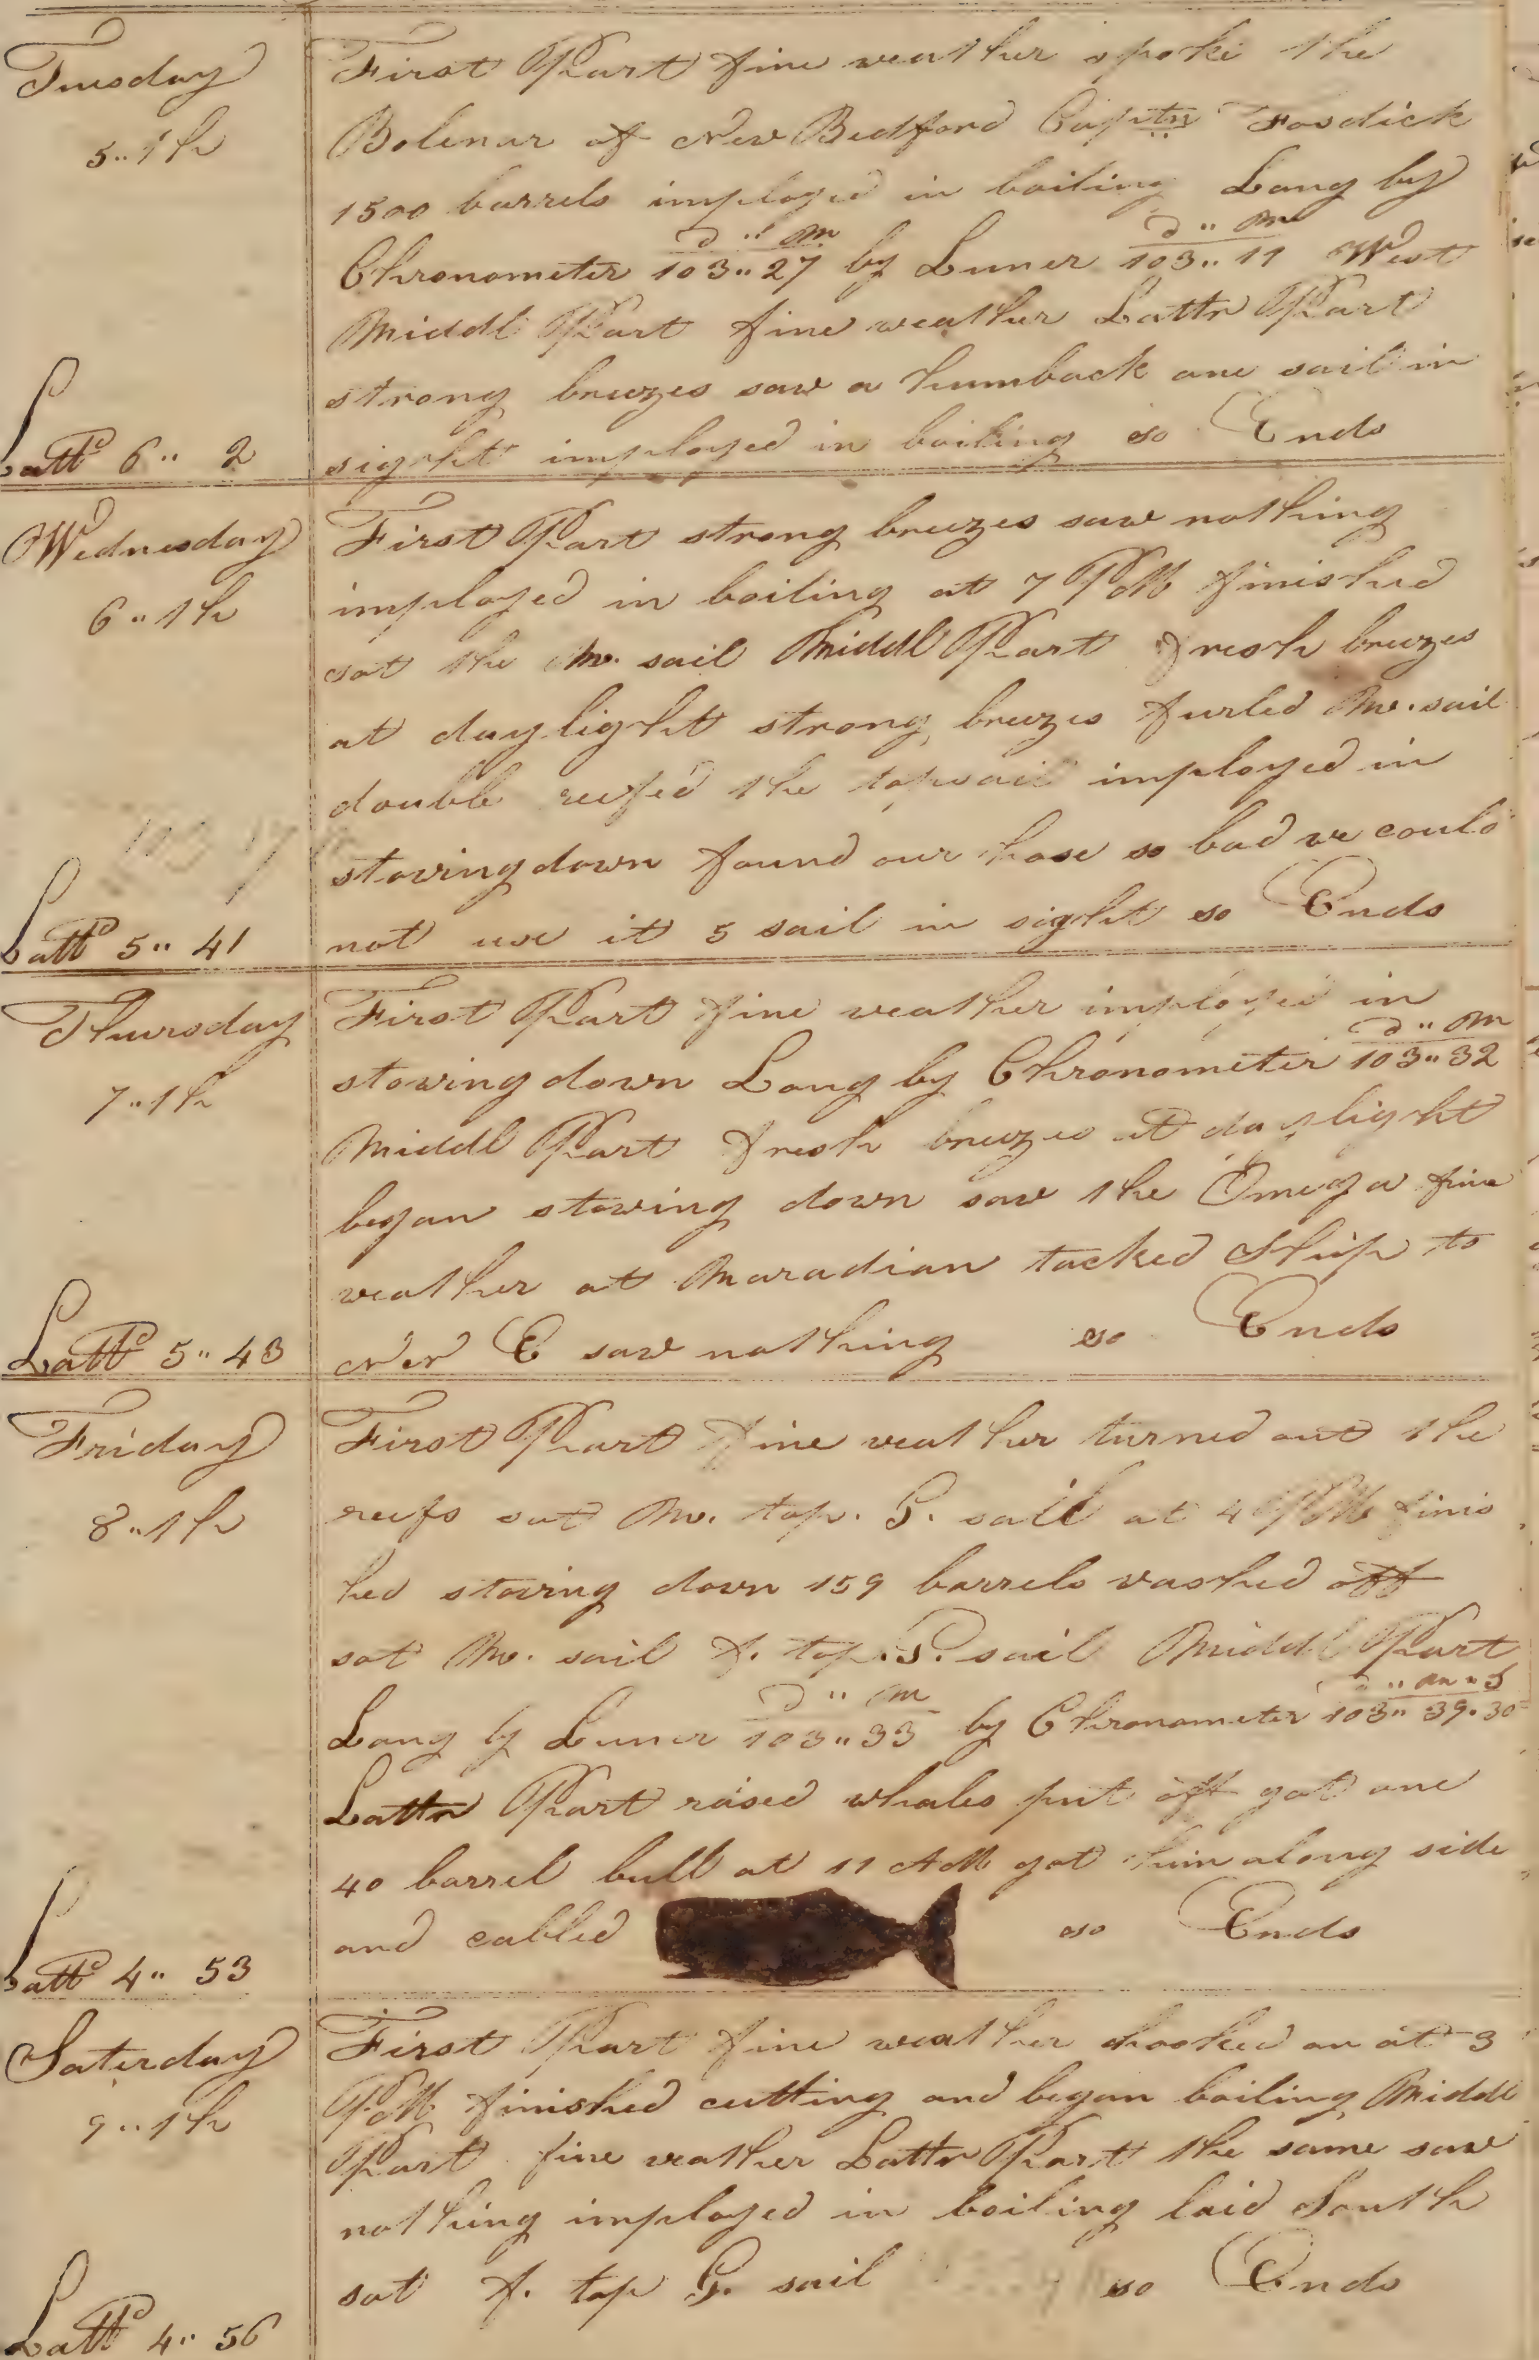 Tuesday
5..th
Lattd 6.. 2
First Part fine weather spoke the
Bolenar of New Bedford Captn Fosdick
1500 barrels imployed in boiling Long by
D .. M D .. M
Chronometer 103..27 by Luner 103..11 West
Middl Part fine weather Lattr Part
strong breezes saw a humback one sail in
sight imployed in boiling so Ends
Wednesday
6..th
Lattd 5.. 41
First Part strong breezes saw nothing
imployed in boiling at 7 PM finished
sat the M. sail Middl Part fresh breezes
at daylight strong breezes furled M. sail
double reefed the topsail imployed in
stowing down found our hose so bad we could
not use it 5 sail in sight so Ends
Thursday
7..th
Lattd 5.. 43
First Part fine weather imployed in
D .. M
stowing down Long by Chronometer 103..32
Middl Part fresh breezes at daylight
began stowing down saw the Omega fine
weather at Maradian tacked Ship to
N E saw nothing so Ends
Friday
8..th
Lattd 4.. 53
First Part fine weather turned out the
reefs sat M. top. G. sail at 4 PM finis
hed stowing down 159 barrels washed off
sat M. sail F. top. G. sail Middl Part
D .. M D .. M .. S
Long by Luner 103..33 by Chronometer 103..39.30
Lattr Part raised whales put off got one
40 barrel bull at 11 AM got him along side
and cabled so Ends
Saterday
9..th
Lattd 4.. 56
First Part fine weather hooked on at 3
PM finished cutting and began boiling Middl
Part fine weather Lattr Part the same saw
nothing imployed in boiling laid South
sat F. top G. sail so Ends